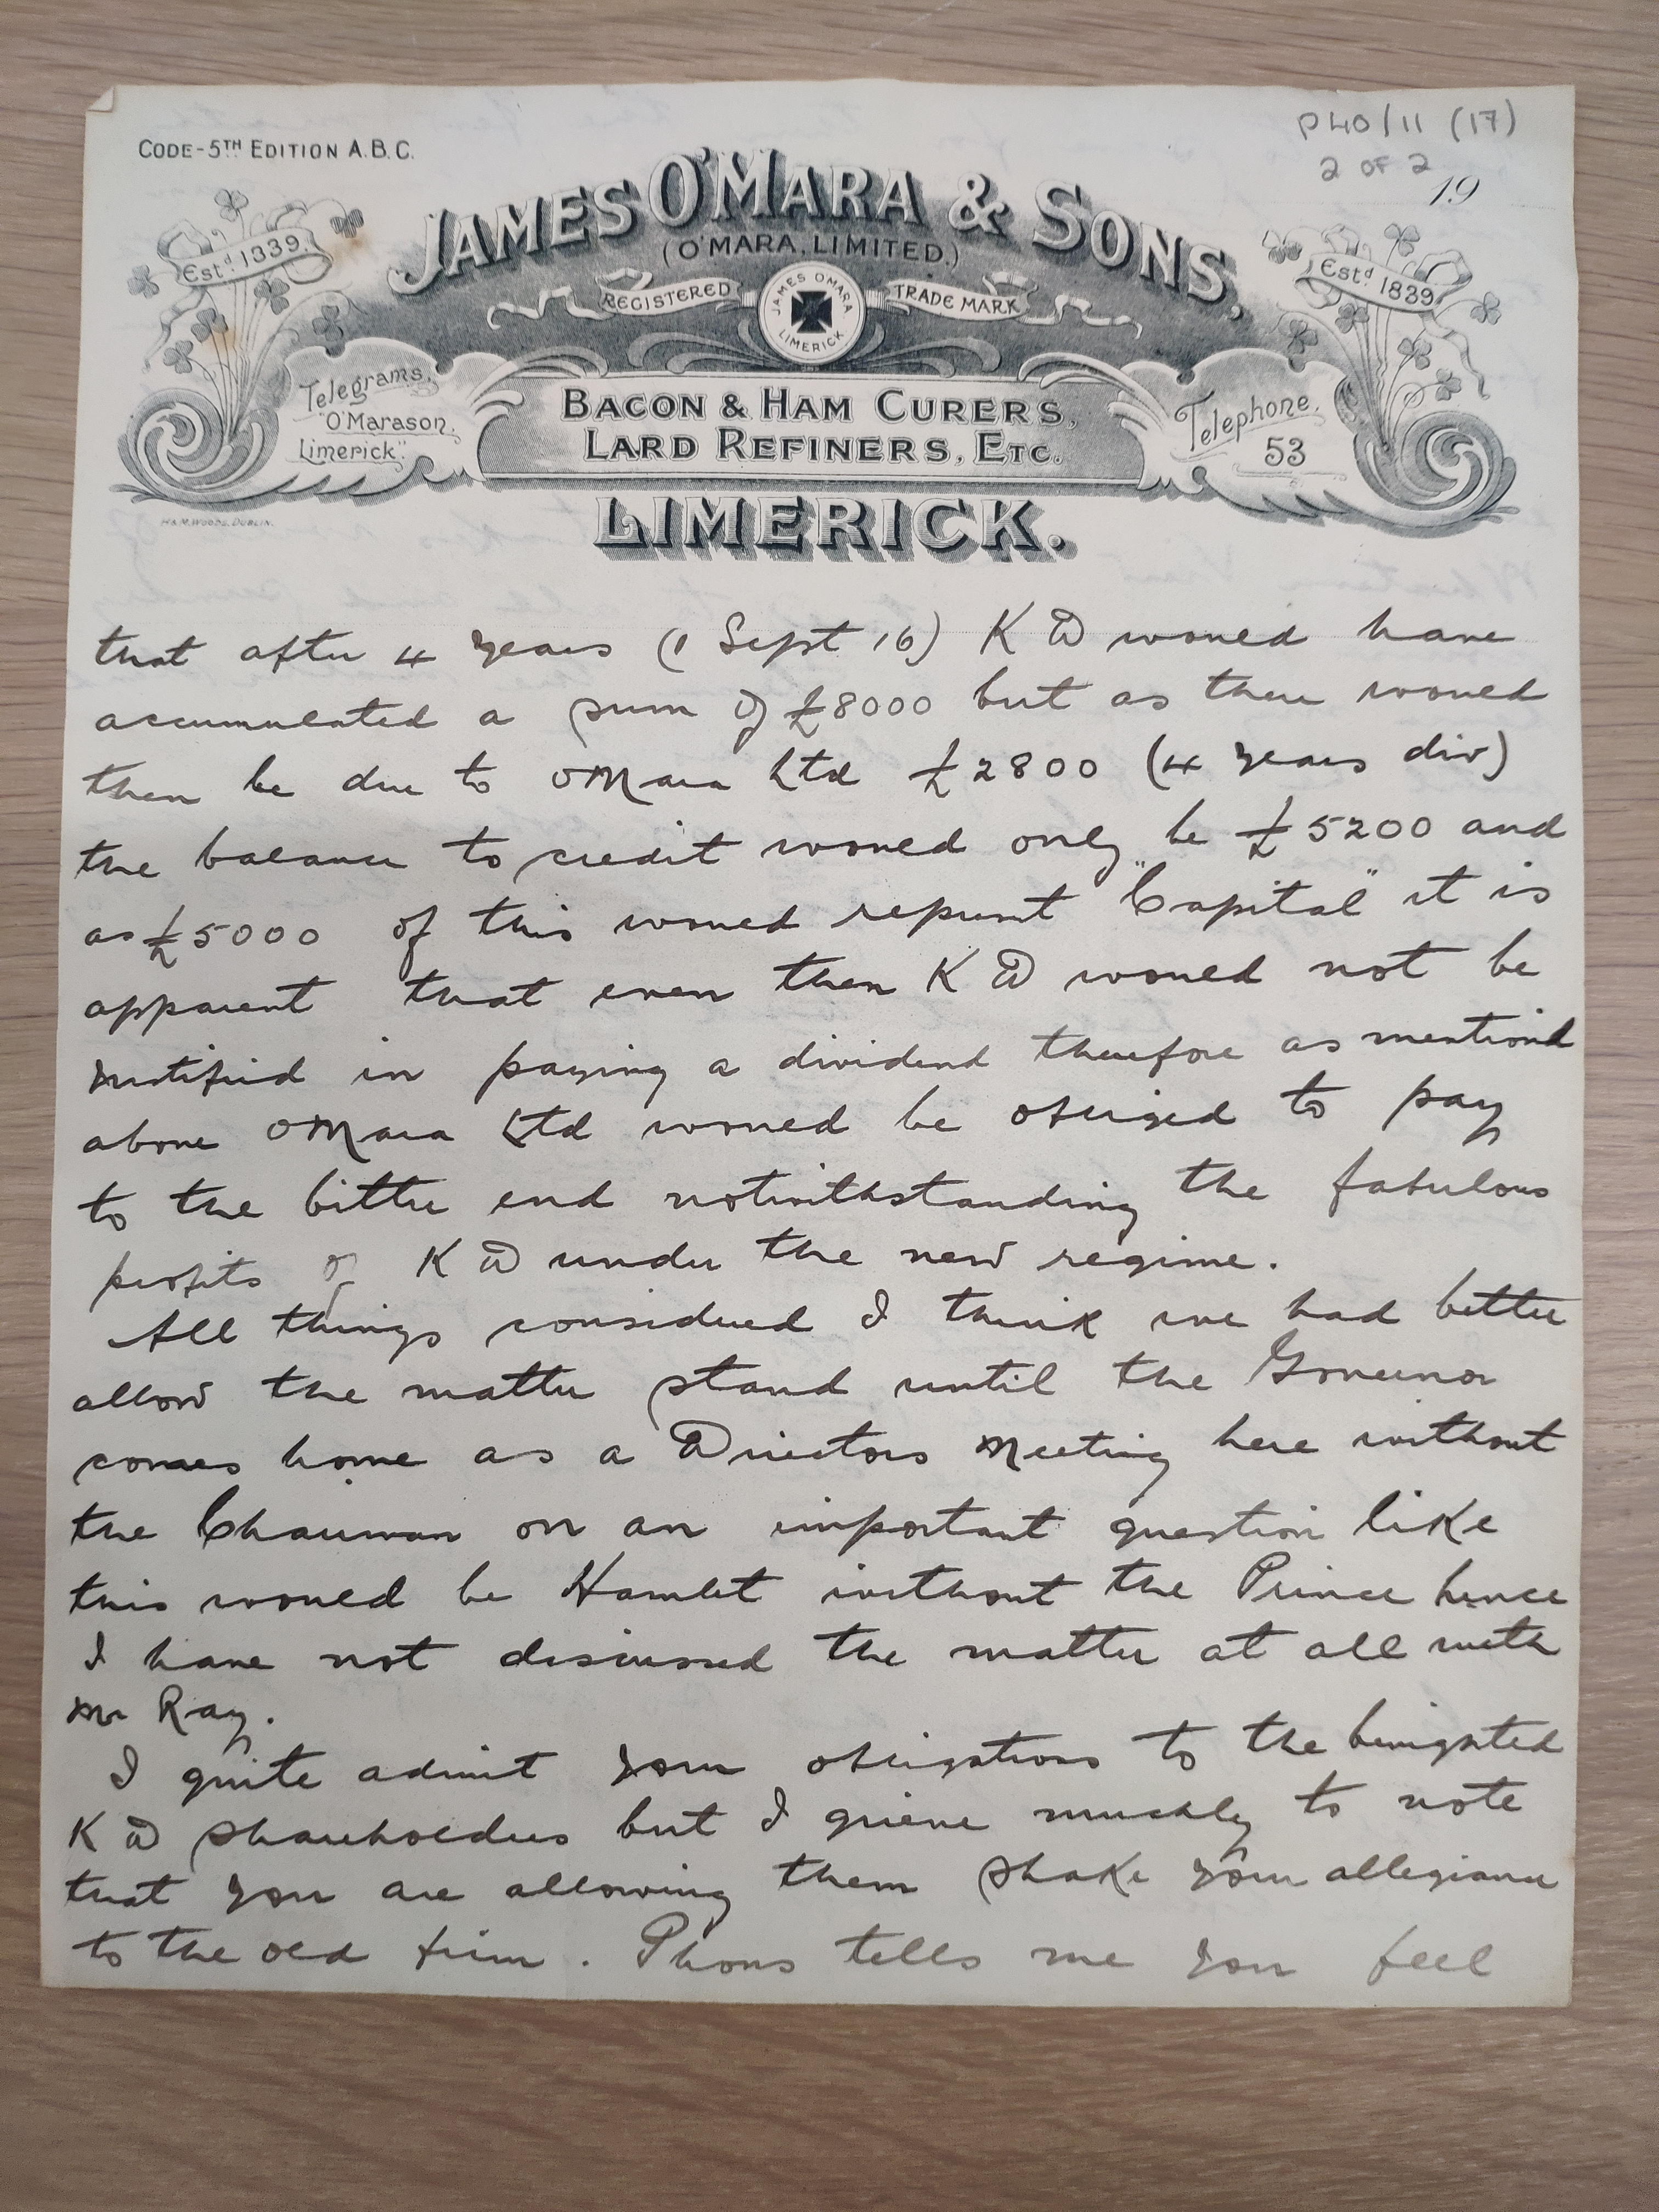 P40/11 (17)
2 OF 2
CODE-5TH EDITION A.B.C.
19
JAMES O'MARA & SONS,
(O'MARA, LIMITED.)
Estd 1839.
Estd 1839
REGISTERED
TRADE MARK
JAMES O'MARA
LIMERICK
Telegrams,
"O'Marason,
Limerick".
BACON & HAM CURERS,
LARD REFINERS, ETC.
Telephone.
53
LIMERICK.
H&M. WOODS, DUBLIN.
that after 4 years (1 Sept 16) K D would have
accumulated a sum of £8000 but as there would
then be due to OMara Ltd £2800 (4 years div)
the balance to credit would only be £5200 and
as £5000 of this would represent "Capital" it is
apparent that even then K D would not be
justified in paying a dividend therefore as mentiond
above OMara Ltd would be obliged to pay
to the bitter end notwithstanding the fabulous
profits of K D under the new regime.
All things considered I think we had better
allow the matter stand until the Governor
comes home as a Directors Meeting here without
the Chairman on an important question like
this would be Hamlet without the Prince hence
I have not discussed the matter at all with
Mr Ray.
I quite admit your obligations to the benighted
K D shareholders but I grieve muchly to note
that you are allowing them shake your allegiance
to the old firm. Phons tells me you feel